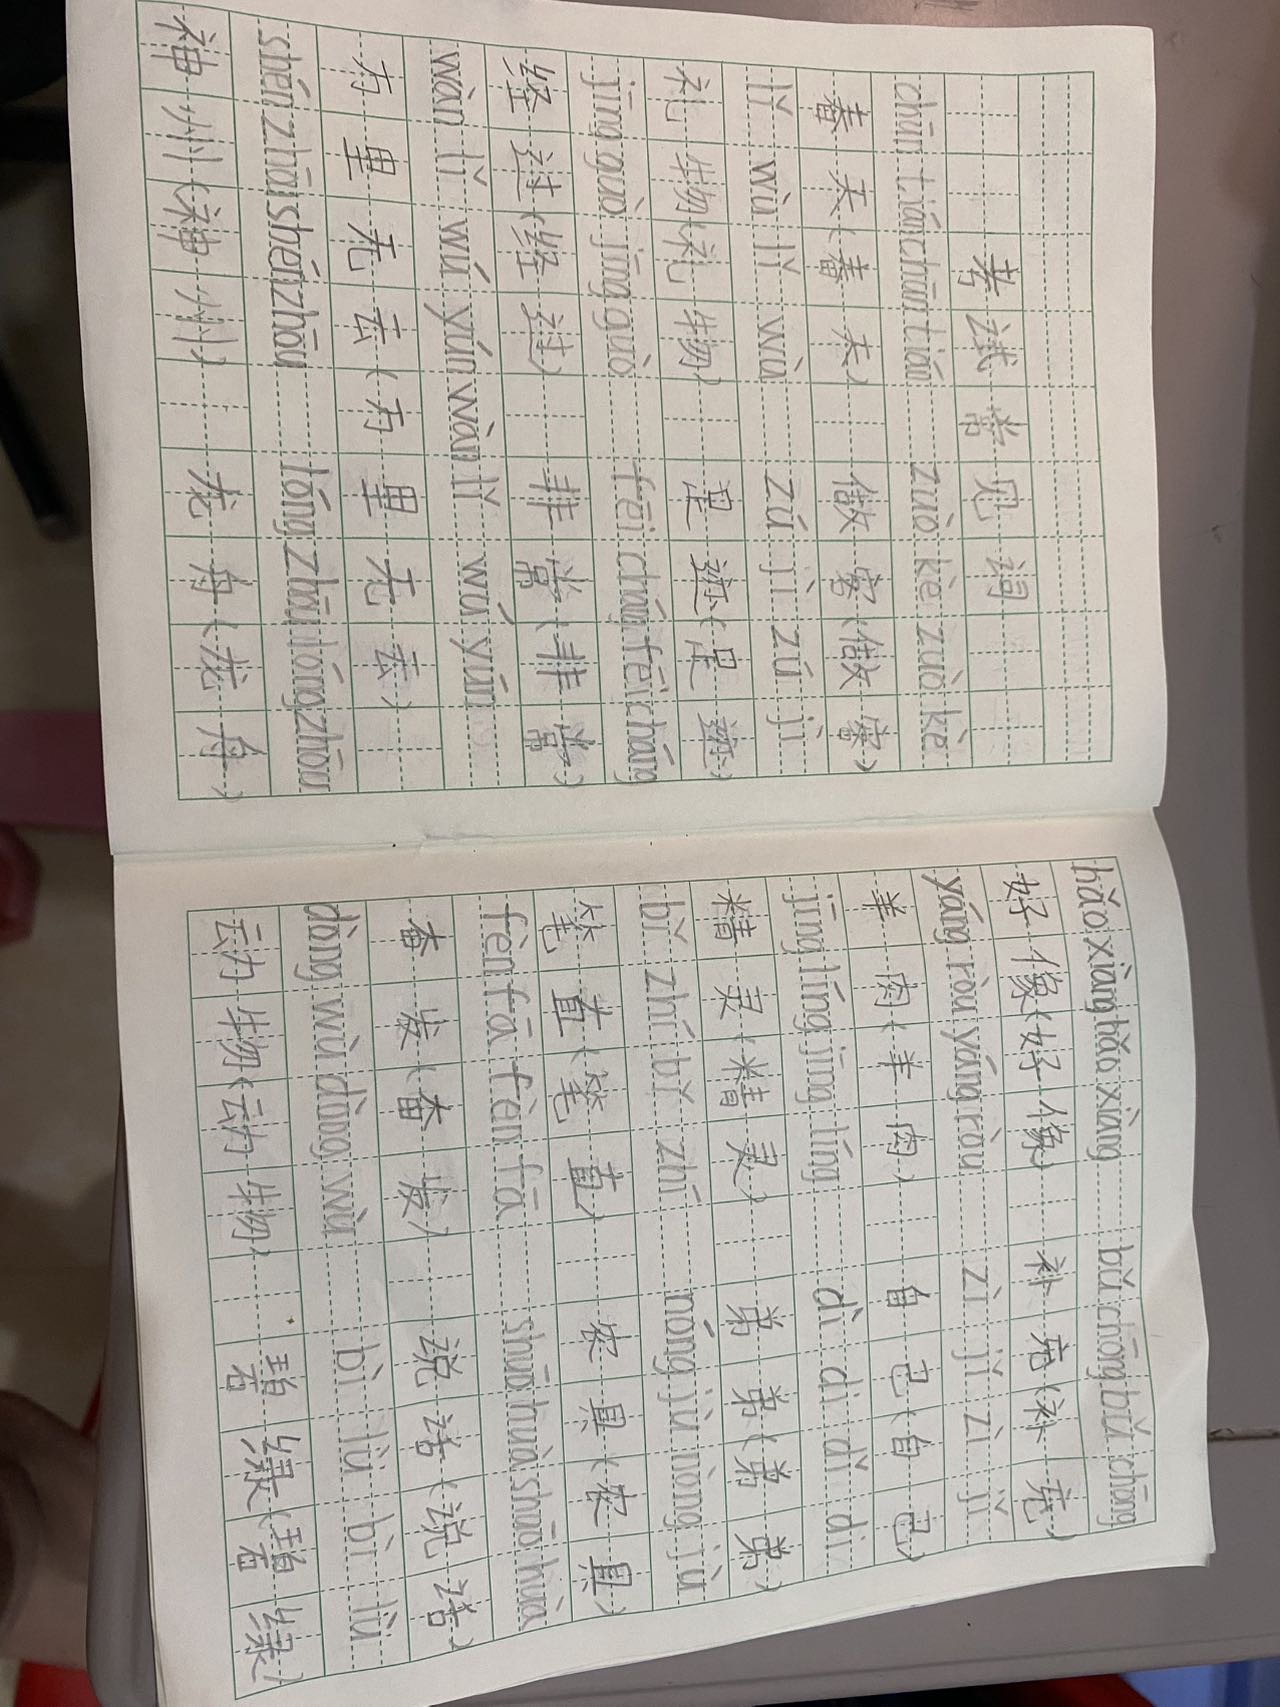 考试常见词
chūn tiān chūn tiān zuò kè zuò kè
春天(春天) 做客(做客)
lǐ wù lǐ wù zú jì zú jì
礼物(礼物) 足迹(足迹)
jīng guò jīng guò fēi cháng fēi cháng
经过(经过) 非常(非常)
wàn lǐ wú yún wàn lǐ wú yún
万里无云(万里无云)
shén zhōu shén zhōu lóng zhōu lóng zhōu
神州(神州) 龙舟(龙舟)
hǎo xiàng hǎo xiàng bǔ chōng bǔ chōng
好像(好像) 补充(补充)
yáng ròu yáng ròu zì jǐ zì jǐ
羊肉(羊肉) 自己(自己)
jīng líng jīng líng dì di dì di
精灵(精灵) 弟弟(弟弟)
bǐ zhí bǐ zhí nóng jù nòng jù
笔直(笔直) 农具(农具)
fèn fā fèn fā shuō huà shuō huà
奋发(奋发) 说话(说话)
dòng wù dòng wù bì lǜ bì lǜ
动物(动物) 碧绿(碧绿)